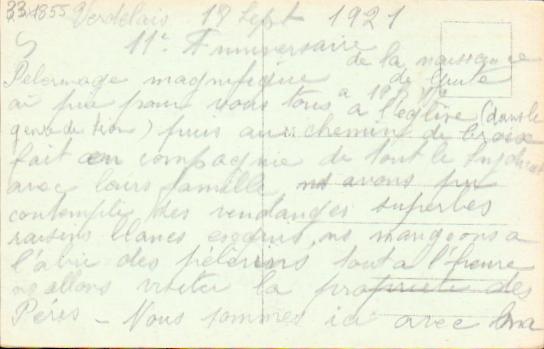 33.1855 Verdelais 18 Sept 1921
11e Anniversaire de la naissance
Pelerinage magnifique de
ai prié pour vous tous a l'église (dans le
genre de Sion) puis au chemin de Croix
fait en compagnie de tout le
avec leurs famille, ns avons pu
contempler des vendanges superbes
raisins blancs exquis, ns mangeons a
l'abri des pèlerins tout a l'heure
ns allons visiter la propriété des
Pères - Nous sommes ici avec